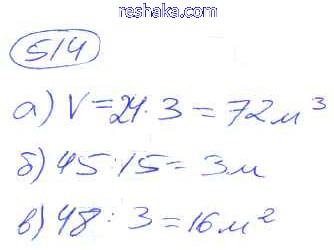 reshaka.com
514
а) V = 24 · 3 = 72 м³
б) 45 : 15 = 3 м
в) 48 : 3 = 16 м²